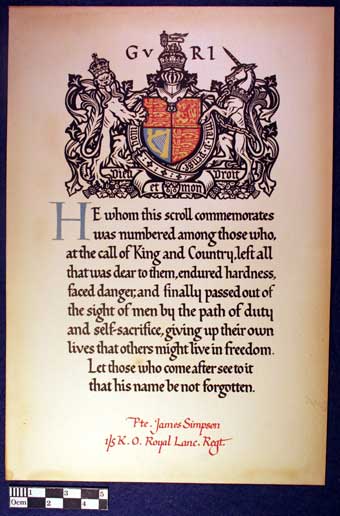 G v R I
Dieu et mon Droit
HE whom this scroll commemorates
was numbered among those who,
at the call of King and Country, left all
that was dear to them, endured hardness,
faced danger, and finally passed out of
the sight of men by the path of duty
and self-sacrifice, giving up their own
lives that others might live in freedom.
Let those who come after see to it
that his name be not forgotten.
Pte. James Simpson
1/5 K. O. Royal Lanc. Regt.
1 3 5
0cm 2 4